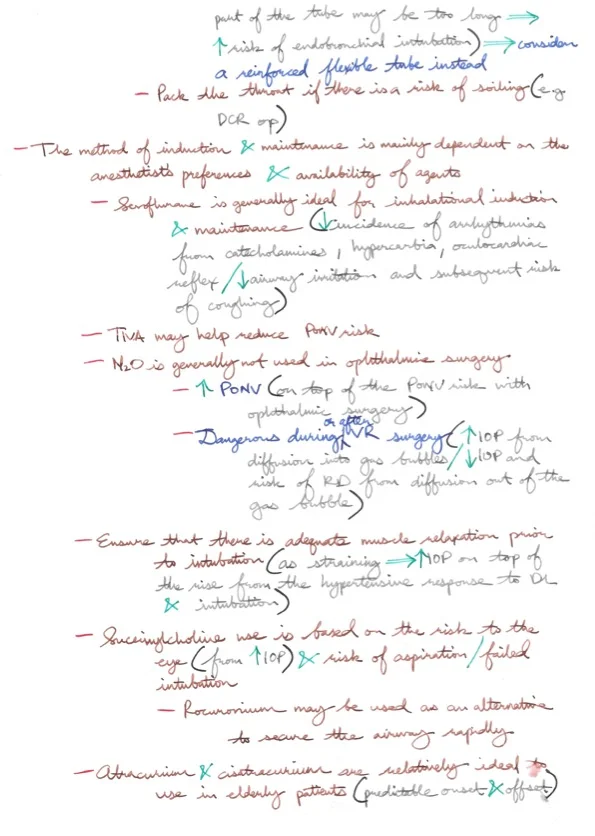 part of the tube may be too long ⇒
↑ risk of endobronchial intubation) ⇒ consider
a reinforced flexible tube instead
– Pack the throat if there is a risk of soiling (e.g.
DCR op)
– The method of induction & maintenance is mainly dependent on the
anesthetist's preferences & availability of agents
– Sevoflurane is generally ideal for inhalational induction
& maintenance (↓ incidence of arrhythmias
from catecholamines, hypercarbia, oculocardiac
reflex / ↓ airway irritation and subsequent risk
of coughing)
– TIVA may help reduce PONV risk
– N2O is generally not used in ophthalmic surgery
– ↑ PONV (on top of the PONV risk with
ophthalmic surgery)
– Dangerous during or after VR surgery (↑ IOP from
diffusion into gas bubbles / ↓ IOP and
risk of RD from diffusion out of the
gas bubble)
– Ensure that there is adequate muscle relaxation prior
to intubation (as straining ⇒ ↑ IOP on top of
the rise from the hypertensive response to DL
& intubation)
– Succinylcholine use is based on the risk to the
eye (from ↑ IOP) & risk of aspiration / failed
intubation
– Rocuronium may be used as an alternative
to secure the airway rapidly
– Atracurium & cisatracurium are relatively ideal to
use in elderly patients (predictable onset & offset)